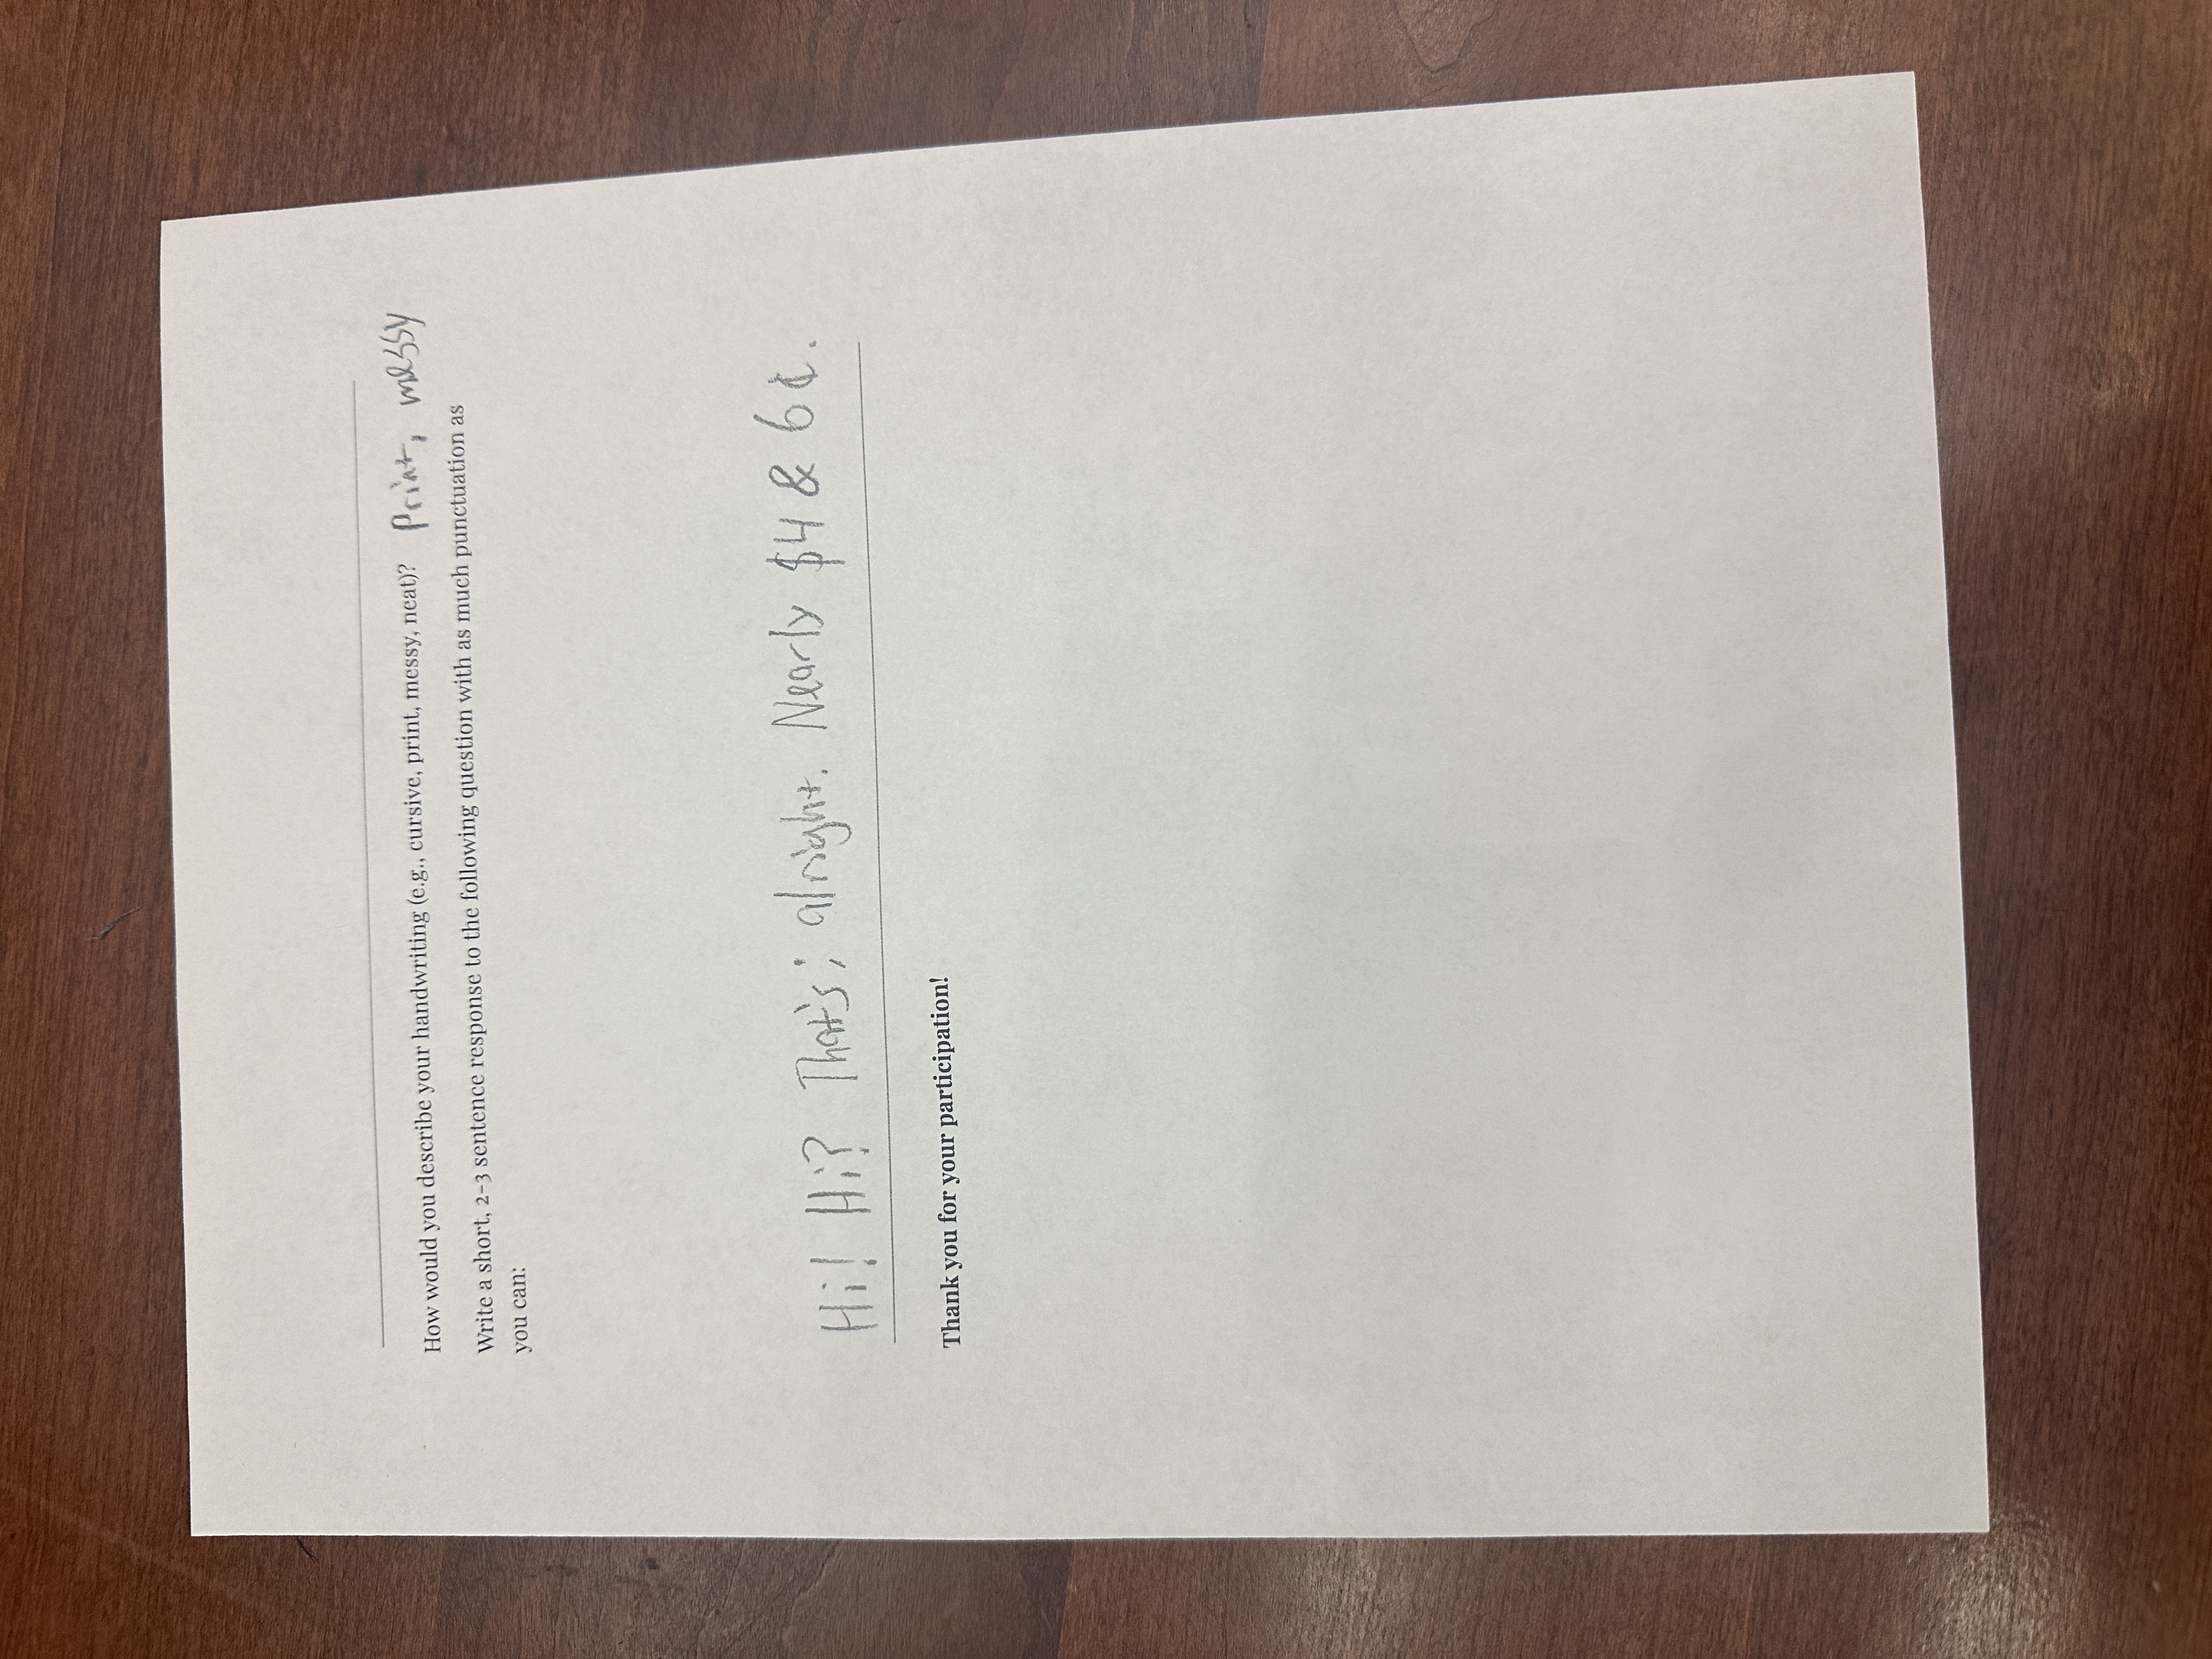 How would you describe your handwriting (e.g., cursive, print, messy, neat)? Print, messy
Write a short, 2-3 sentence response to the following question with as much punctuation as
you can:
Hi! Hi? That's; alright. Nearly $4 & 6¢.
Thank you for your participation!